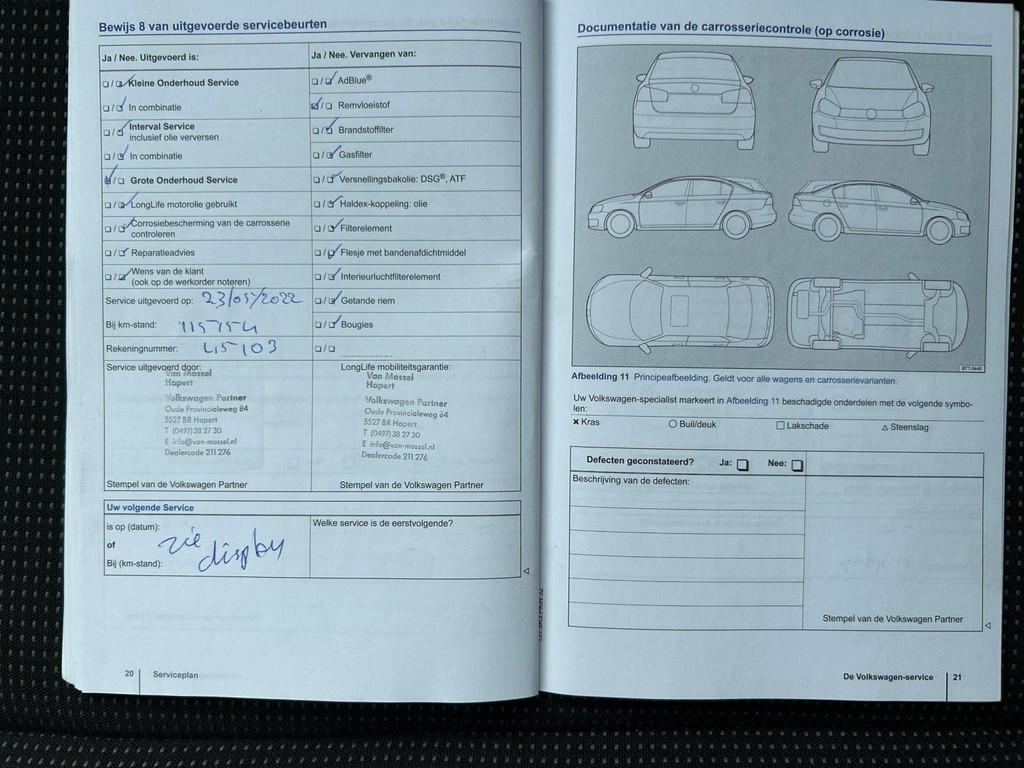 Bewijs 8 van uitgevoerde servicebeurten
Ja / Nee. Uitgevoerd is:
Ja / Nee. Vervangen van:
Kleine Onderhoud Service
AdBlue®
In combinatie
Remvloeistof
Interval Service
inclusief olie verversen
Brandstoffilter
In combinatie
Gasfilter
Grote Onderhoud Service
Versnellingsbakolie: DSG®, ATF
LongLife motorolie gebruikt
Haldex-koppeling: olie
Corrosiebescherming van de carrosserie
controleren
Filterelement
Reparatieadvies
Flesje met bandenafdichtmiddel
Wens van de klant
(ook op de werkorder noteren)
Interieurluchtfilterelement
Service uitgevoerd op: 23/05/2022
Getande riem
Bij km-stand: 115754
Bougies
Rekeningnummer: 45103
Service uitgevoerd door:
Van Mossel
Hapert
Volkswagen Partner
Oude Provincialeweg 84
5527 BR Hapert
T (0497) 38 27 30
E info@van-mossel.nl
Dealercode 211 276
Stempel van de Volkswagen Partner
LongLife mobiliteitsgarantie:
Van Mossel
Hapert
Volkswagen Partner
Oude Provincialeweg 84
5527 BR Hapert
T (0497) 38 27 30
E info@van-mossel.nl
Dealercode 211 276
Stempel van de Volkswagen Partner
Uw volgende Service
is op (datum):
of
Bij (km-stand):
zie
display
Welke service is de eerstvolgende?
20 Serviceplan
Documentatie van de carrosseriecontrole (op corrosie)
Afbeelding 11 Principeafbeelding. Geldt voor alle wagens en carrosserievarianten.
Uw Volkswagen-specialist markeert in Afbeelding 11 beschadigde onderdelen met de volgende symbo-
len:
Kras
Buil/deuk
Lakschade
Steenslag
Defecten geconstateerd? Ja: Nee:
Beschrijving van de defecten:
Stempel van de Volkswagen Partner
De Volkswagen-service 21